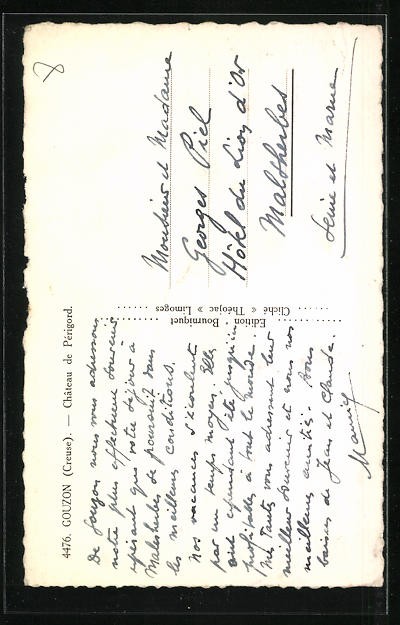 4476. GOUZON (Creuse). — Château de Périgord.
De Gouzon nous vous adressons
notre plus affectueux souvenir
espérant que votre séjour à
Malesherbes se poursuit dans
les meilleures conditions.
Nos vacances s'écoulent
par un temps moyen. Elle
cependant été
profitables à tout le monde.
Mes Tantes vous adressent leur
meilleur souvenir et nous nos
meilleures amitiés. Bons
baisers de Jean et Claude.
Edition Bourniquet
Cliché « Théojac » Limoges
Monsieur et Madame
Georges Piel
Hôtel du Lion d'Or
Malesherbes
Seine et Marne